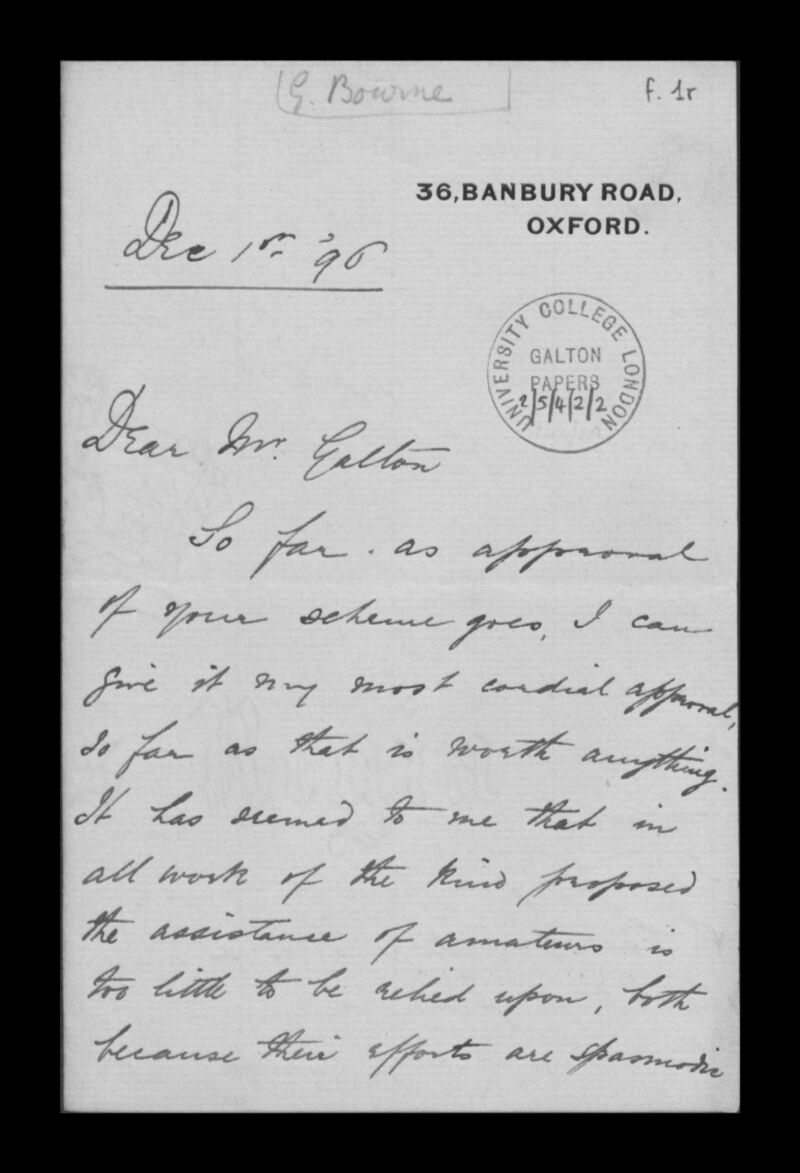 G. Bourne
f. 1r
36, BANBURY ROAD,
OXFORD.
Dec 1st '96
UNIVERSITY COLLEGE LONDON
GALTON
PAPERS
2/5/4/2/2
Dear Mr. Galton
So far as approval
of your scheme goes, I can
give it my most cordial approval,
so far as that is worth anything.
It has seemed to me that in
all work of the kind proposed
the assistance of amateurs is
too little to be relied upon, both
because their efforts are spasmodic